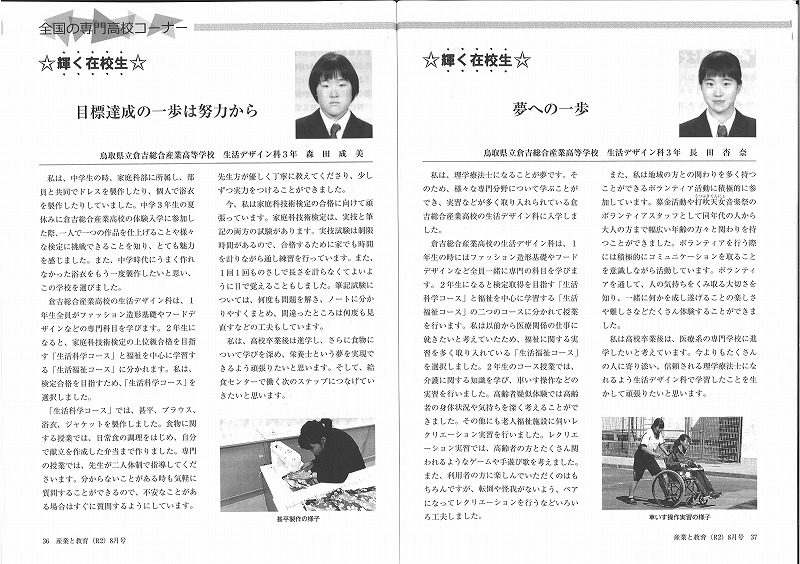 全国の専門高校コーナー
☆輝く在校生☆
目標達成の一歩は努力から
鳥取県立倉吉総合産業高等学校　生活デザイン科３年　森　田　成　美
私は、中学生の時、家庭科部に所属し、部
員と共同でドレスを製作したり、個人で浴衣
を製作したりしていました。中学３年生の夏
休みに倉吉総合産業高校の体験入学に参加し
た際、一人で一つの作品を仕上げることや様々
な検定に挑戦できることを知り、とても魅力
を感じました。また、中学時代にうまく作れ
なかった浴衣をもう一度製作したいと思い、
この学校を選びました。
倉吉総合産業高校の生活デザイン科は、１
年生全員がファッション造形基礎やフードデ
ザインなどの専門科目を学びます。２年生に
なると、家庭科技術検定の上位級合格を目指
す「生活科学コース」と福祉を中心に学習す
る「生活福祉コース」に分かれます。私は、
検定合格を目指すため、「生活科学コース」を
選択しました。
「生活科学コース」では、甚平、ブラウス、
浴衣、ジャケットを製作しました。食物に関
する授業では、日常食の調理をはじめ、自分
で献立を作成した弁当まで作りました。専門
の授業では、先生が二人体制で指導してくだ
さいます。分からないことがある時も気軽に
質問することができるので、不安なことがあ
る場合はすぐに質問するようにしています。
先生方が優しく丁寧に教えてくださり、少し
ずつ実力をつけることができました。
今、私は家庭科技術検定の合格に向けて頑
張っています。家庭科技術検定は、実技と筆
記の両方の試験があります。実技試験は制限
時間があるので、合格するために家でも時間
を計りながら通し練習を行っています。また、
１回１回ものさしで長さを計らなくてよいよう
に目で覚えることもしました。筆記試験に
ついては、何度も問題を解き、ノートに分か
りやすくまとめ、間違ったところは何度も見
直すなどの工夫もしています。
私は、高校卒業後は進学し、さらに食物に
ついて学びを深め、栄養士という夢を実現で
きるよう頑張りたいと思います。そして、給
食センターで働く次のステップにつなげてい
きたいと思います。
甚平製作の様子
36　産業と教育（R2）8月号
☆輝く在校生☆
夢への一歩
鳥取県立倉吉総合産業高等学校　生活デザイン科３年　長　田　杏　奈
私は、理学療法士になることが夢です。そ
のため、様々な専門分野について学ぶことが
でき、実習などが多く取り入れられている倉
吉総合産業高校の生活デザイン科に入学しま
した。
倉吉総合産業高校の生活デザイン科は、１
年生の時にはファッション造形基礎やフード
デザインなど全員一緒に専門の科目を学びま
す。２年生になると検定取得を目指す「生活
科学コース」と福祉を中心に学習する「生活
福祉コース」の二つのコースに分かれて授業
を行います。私は以前から医療関係の仕事に
就きたいと考えていたため、福祉に関する実
習を多く取り入れている「生活福祉コース」
を選択しました。２年生のコース授業では、
介護に関する知識を学び、車いす操作などの
実習を行いました。高齢者疑似体験では高齢
者の身体状況や気持ちを深く考えることがで
きました。その他にも老人福祉施設に伺いレ
クリエーション実習を行いました。レクリエ
ーション実習では、高齢者の方とたくさん関
われるようなゲームや手遊び歌を考えました。
また、利用者の方に楽しんでいただくのはも
ちろんですが、転倒や怪我がないよう、ペア
になってレクリエーションを行うなどいろい
ろ工夫しました。
また、私は地域の方との関わりを多く持つ
ことができるボランティア活動に積極的に参
加しています。募金活動や打吹天女音楽祭の
ボランティアスタッフとして同年代の人から
大人の方まで幅広い年齢の方々と関わりを持
つことができました。ボランティアを行う際
には積極的にコミュニケーションを取ること
を意識しながら活動しています。ボランティ
アを通して、人の気持ちをくみ取る大切さを
知り、一緒に何かを成し遂げることの楽しさ
や難しさなどたくさん体験することができま
した。
私は高校卒業後は、医療系の専門学校に進
学したいと考えています。今よりもたくさん
の人に寄り添い、信頼される理学療法士にな
れるよう生活デザイン科で学習したことを生
かして頑張りたいと思います。
車いす操作実習の様子
産業と教育（R2）8月号　37